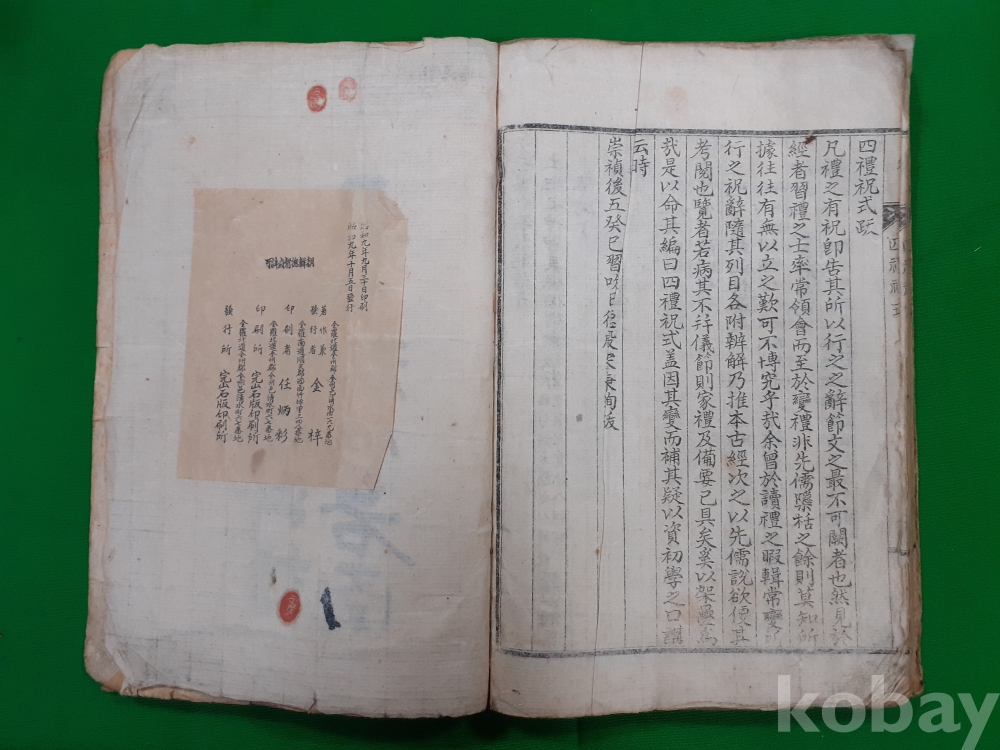 四禮祝式跋
凡禮之有祝即告其所以行之之辭節文之最不可闕者也然見於
經者習禮之士率常領會而至於變禮非先儒櫽栝之餘則莫知所
據往往有無以立之歎可不博究乎哉余曾於讀禮之暇輯常變所
行之祝辭隨其列目各附辨解乃推本古經次之以先儒說欲便其
考閱也覽者若病其不幷儀節則家禮及備要已具矣奚以架疊爲
哉是以命其編曰四禮祝式盖因其變而補其疑以資初學之口講
云時
崇禎後五癸巳習吹日
昭和九年九月三十日印刷
昭和九年十月五日發行
著作兼
發行者 金 梓
印刷者 任炳彩
全羅北道全州郡全州邑清水町六七番地
印刷所 完山石版印刷所
全羅北道全州郡全州邑清水町六七番地
發行所 完山石版印刷所
kobay